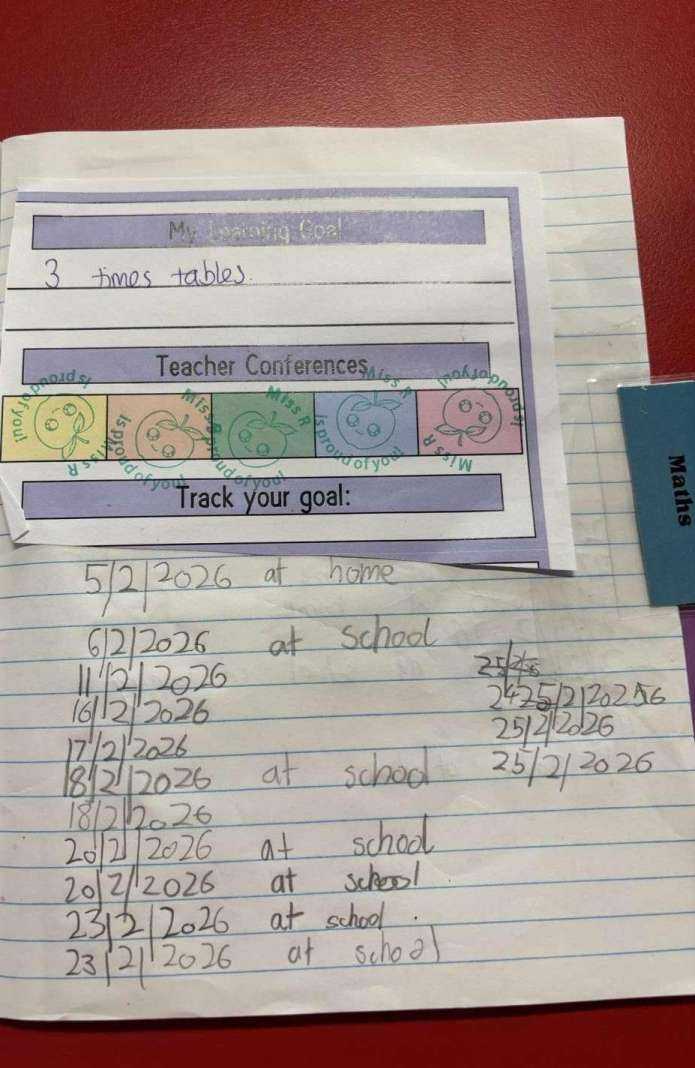 My Learning Goal
3 times tables.
Teacher Conferences
Miss R is proud of you!
Miss R is proud of you!
Miss R is proud of you!
Miss R is proud of you!
Miss R is proud of you!
Track your goal:
Maths
5/2/2026 at home
6/2/2026 at school
11/2/2026
16/2/2026
17/2/2026
18/2/2026 at school
18/2/2026
20/2/2026 at school
20/2/2026 at school
23/2/2026 at school.
23/2/2026 at school
25/2/2026
25/2/2026